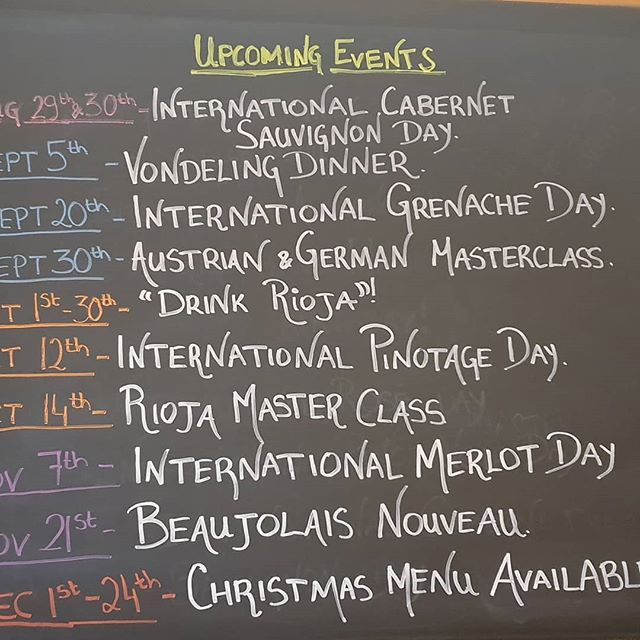 UPCOMING EVENTS
G 29th & 30th - INTERNATIONAL CABERNET
SAUVIGNON DAY.
EPT 5th - VONDELING DINNER.
EPT 20th - INTERNATIONAL GRENACHE DAY.
EPT 30th - AUSTRIAN & GERMAN MASTERCLASS.
T 1st - 30th - "DRINK RIOJA"!
T 12th - INTERNATIONAL PINOTAGE DAY.
T 14th - RIOJA MASTER CLASS
OV 7th - INTERNATIONAL MERLOT DAY
OV 21st - BEAUJOLAIS NOUVEAU.
EC 1st - 24th - CHRISTMAS MENU AVAILABL